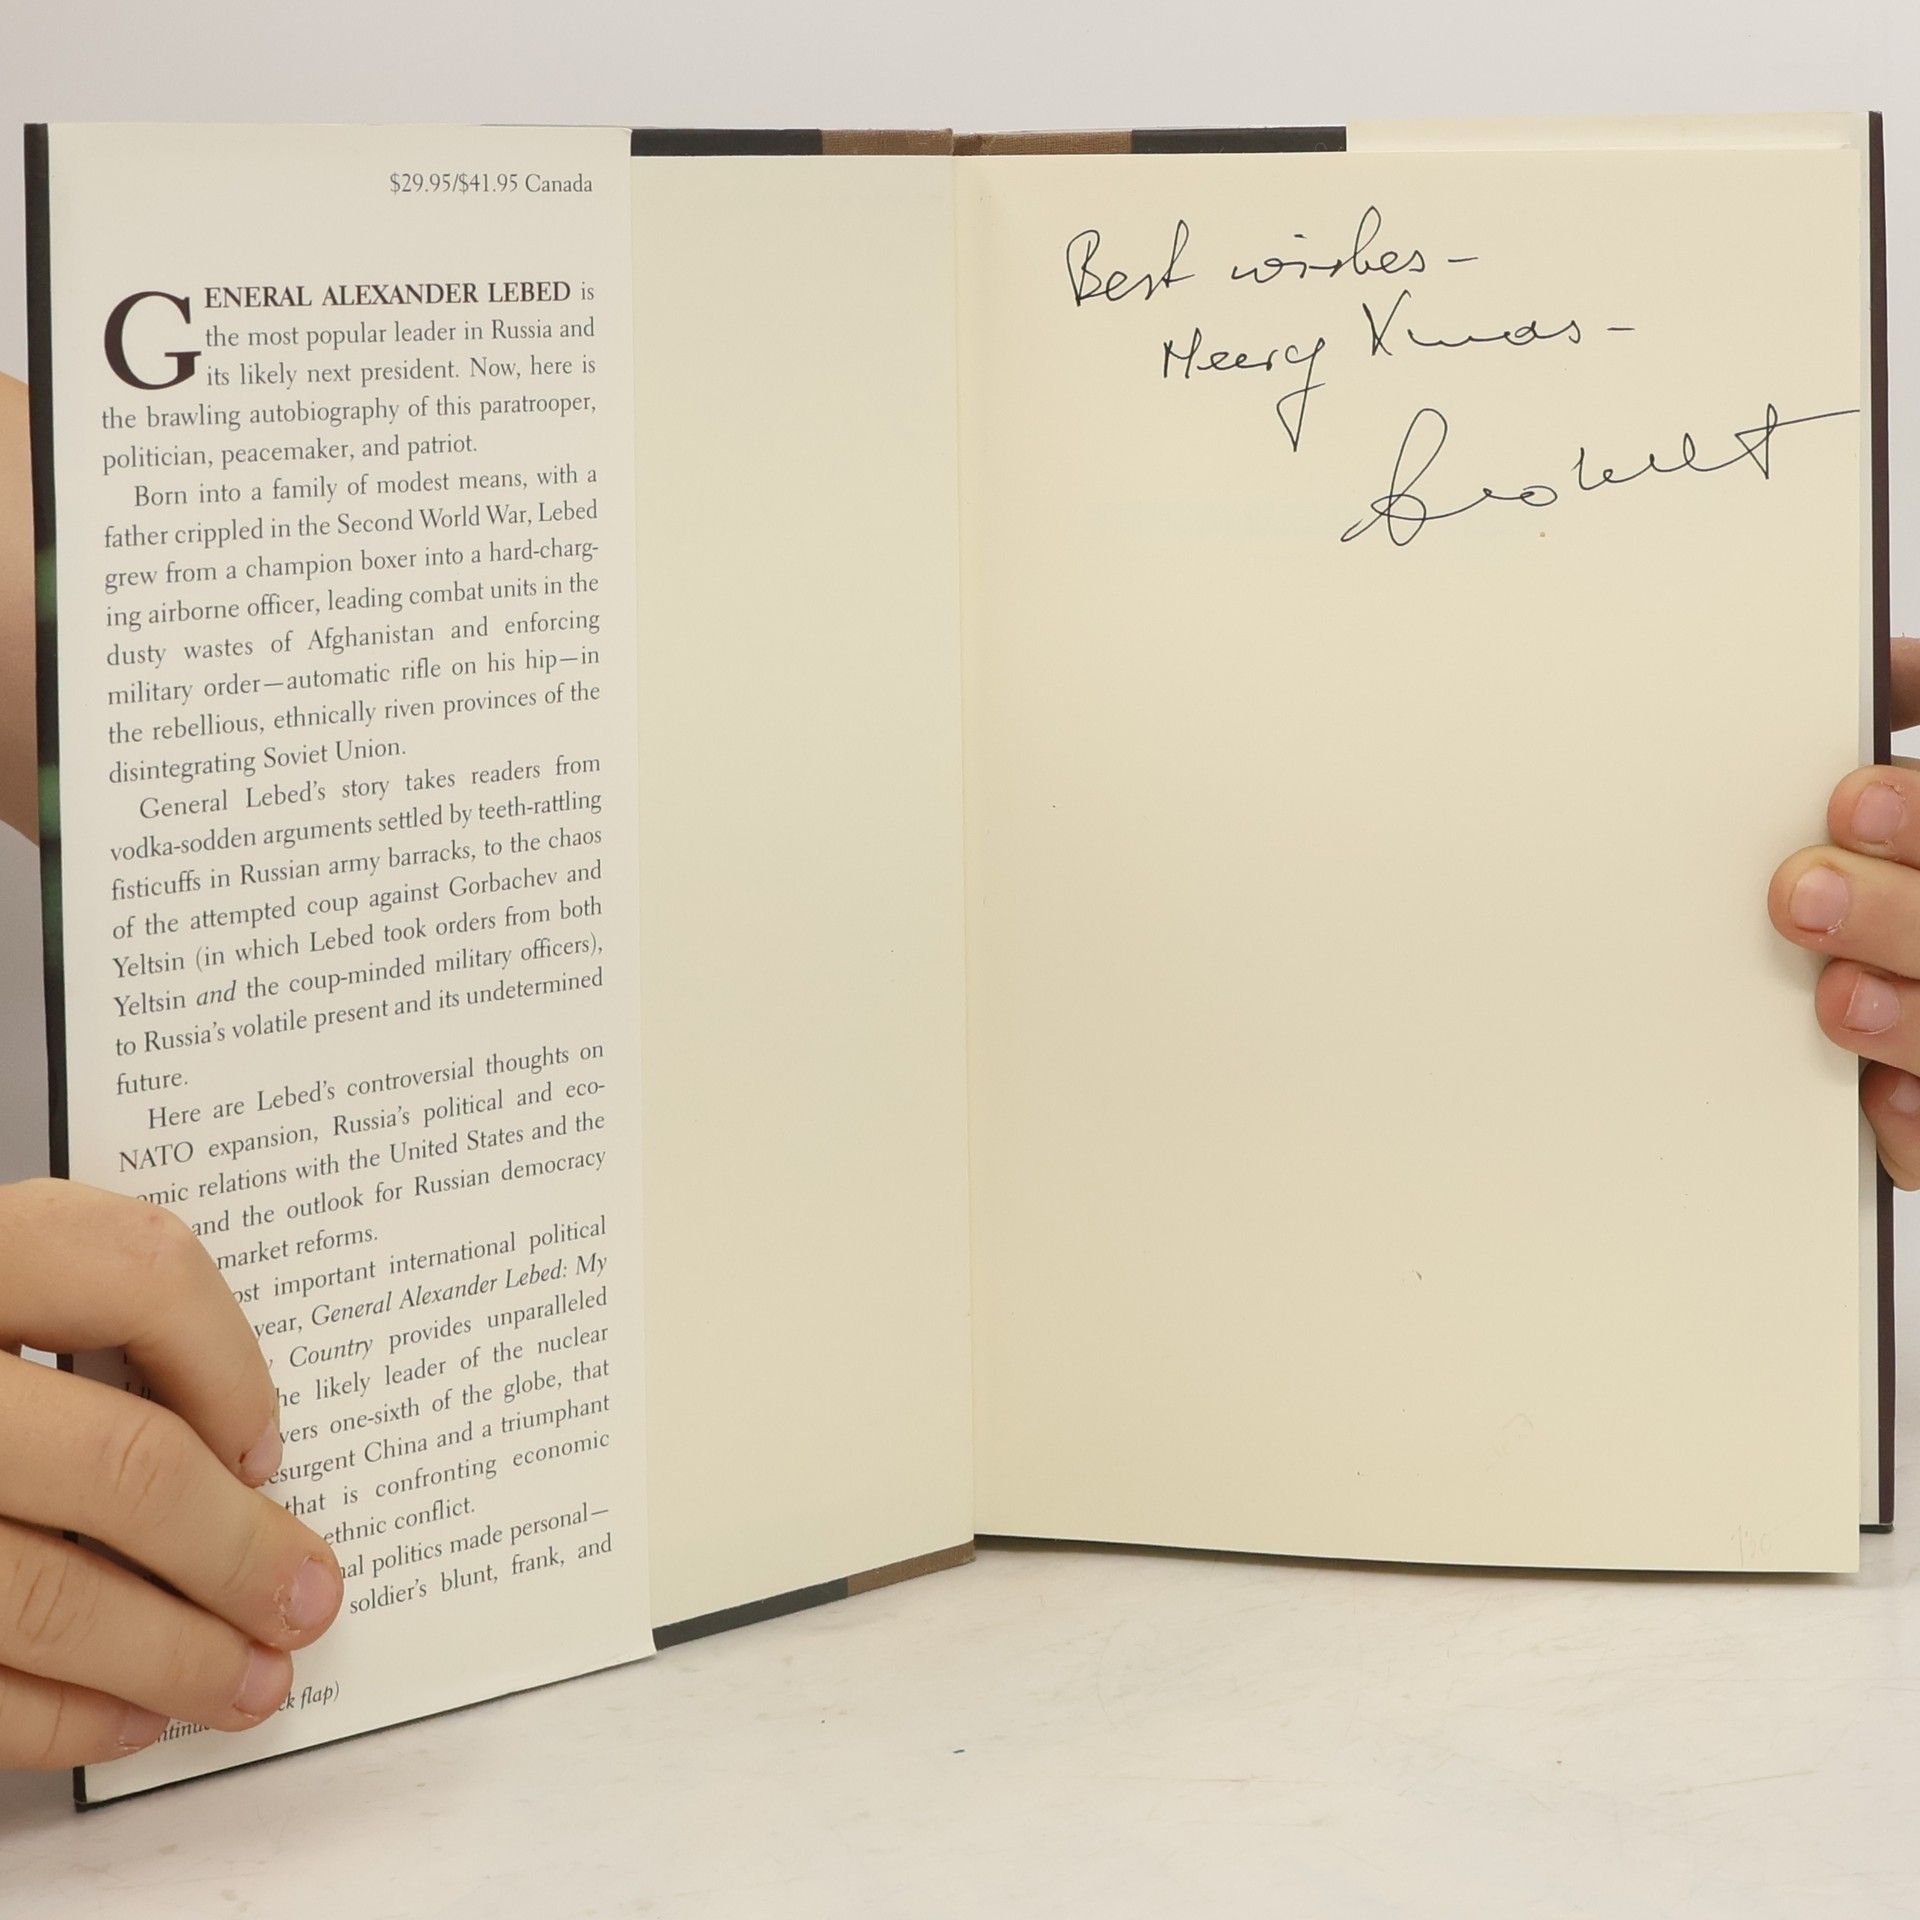 $29.95/$41.95 Canada
GENERAL ALEXANDER LEBED is
the most popular leader in Russia and
its likely next president. Now, here is
the brawling autobiography of this paratrooper,
politician, peacemaker, and patriot.
Born into a family of modest means, with a
father crippled in the Second World War, Lebed
grew from a champion boxer into a hard-charg-
ing airborne officer, leading combat units in the
dusty wastes of Afghanistan and enforcing
military order—automatic rifle on his hip—in
the rebellious, ethnically riven provinces of the
disintegrating Soviet Union.
General Lebed's story takes readers from
vodka-sodden arguments settled by teeth-rattling
fisticuffs in Russian army barracks, to the chaos
of the attempted coup against Gorbachev and
Yeltsin (in which Lebed took orders from both
Yeltsin and the coup-minded military officers),
to Russia's volatile present and its undetermined
future.
Here are Lebed's controversial thoughts on
NATO expansion, Russia's political and eco-
omic relations with the United States and the
and the outlook for Russian democracy
market reforms.
ost important international political
year, General Alexander Lebed: My
Country provides unparalleled
he likely leader of the nuclear
vers one-sixth of the globe, that
esurgent China and a triumphant
that is confronting economic
ethnic conflict.
nal politics made personal—
soldier's blunt, frank, and
ck flap)
Best wishes -
Merry Xmas -